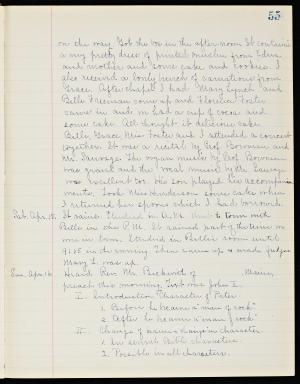 55
on the way. Got the box in the afternoon. It contained
a very pretty dress of printed muslin from Edna
and mother and some cake and cookies. I
also received a lovely bunch of carnations from
Grace. After chapel I had Mary Lynch and
Belle Freeman come up and Florence Foster
came in and we had a cup of cocoa and
some cake. All thought it delicious cake.
Belle, Grace, Miss Foster and I attended a concert
together. It was a recital by Prof. Bowman and
Mr. Savage. The organ music by Prof Bowman
was grand and the vocal music by Mr. Savage
was excellent too. His son played his accompani-
ments. Took Miss Anderson some cake when
I returned her spoons which I had borrowed.
Sat. Apr. 15. It rains. Studied in A.M. Went to town with
Belle in the P.M. It rained part of the time we
were in town. Studied in Belle's room until
9:15 in the evening. Then came up & made fudge.
Mary L. was up.
Sun. Apr. 16 Heard Rev. Mr. Beckwith of Maine,
preach this morning. Text was John I.
I. Introduction Character of Peter
1. Before he became a "man of rock"
2. After he became a "man of rock"
II. Change of name & change in character
1. In several Bible characters.
2. Possible in all characters.